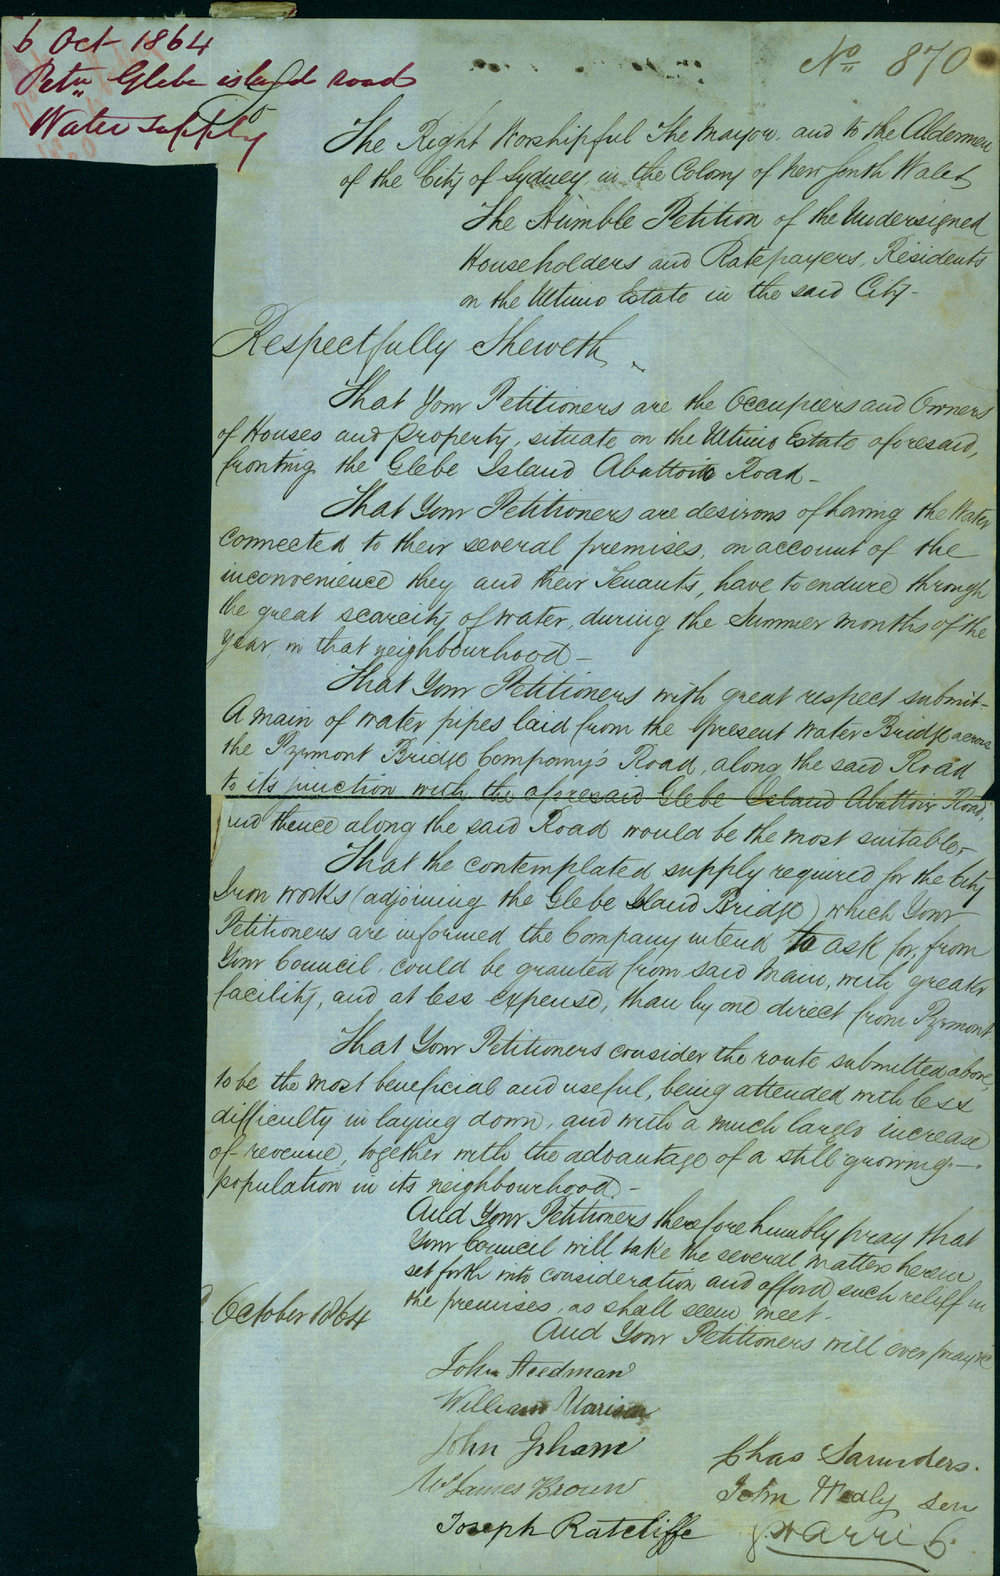 6 Oct 1864
Petn Glebe island road
Water supply
No 870
The Right Worshipful The Mayor and to the Aldermen
of the City of Sydney in the Colony of New South Wales
The Humble Petition of the Undersigned
Householders and Ratepayers, Residents
on the Ultimo Estate in the said City -
Respectfully Sheweth,
That Your Petitioners are the Occupiers and Owners
of Houses and property, situate on the Ultimo Estate aforesaid,
fronting the Glebe Island Abattoir Road -
That Your Petitioners are desirous of having the Water
connected to their several premises, on account of the
inconvenience they and their Tenants, have to endure through
the great scarcity of water, during the Summer months of the
year in that neighbourhood -
That Your Petitioners with great respect submit -
A main of water pipes laid from the present water Bridge across
the Pyrmont Bridge Company's Road, along the said Road
to its junction with the aforesaid Glebe Island Abattoir Road,
and thence along the said Road would be the most suitable -
That the contemplated supply required for the City
Iron works (adjoining the Glebe Island Bridge) which Your
Petitioners are informed the Company intend to ask for, from
Your Council, could be granted from said Main, with greater
facility, and at less expense, than by one direct from Pyrmont
That Your Petitioners consider the route submitted above,
to be the most beneficial and useful, being attended with less
difficulty in laying down, and with a much larger increase
of revenue, together with the advantage of a still growing -
population in its neighbourhood -
And Your Petitioners therefore humbly pray that
Your Council will take the several matters herein
set forth into consideration and afford such relief in
the premises, as shall seem meet -
October 1864
And Your Petitioners will ever pray &c
John Steedman
William Morrison
John Graham
Wm James Brown
Joseph Ratcliffe
Chas Saunders.
John Healy Sen
Harris